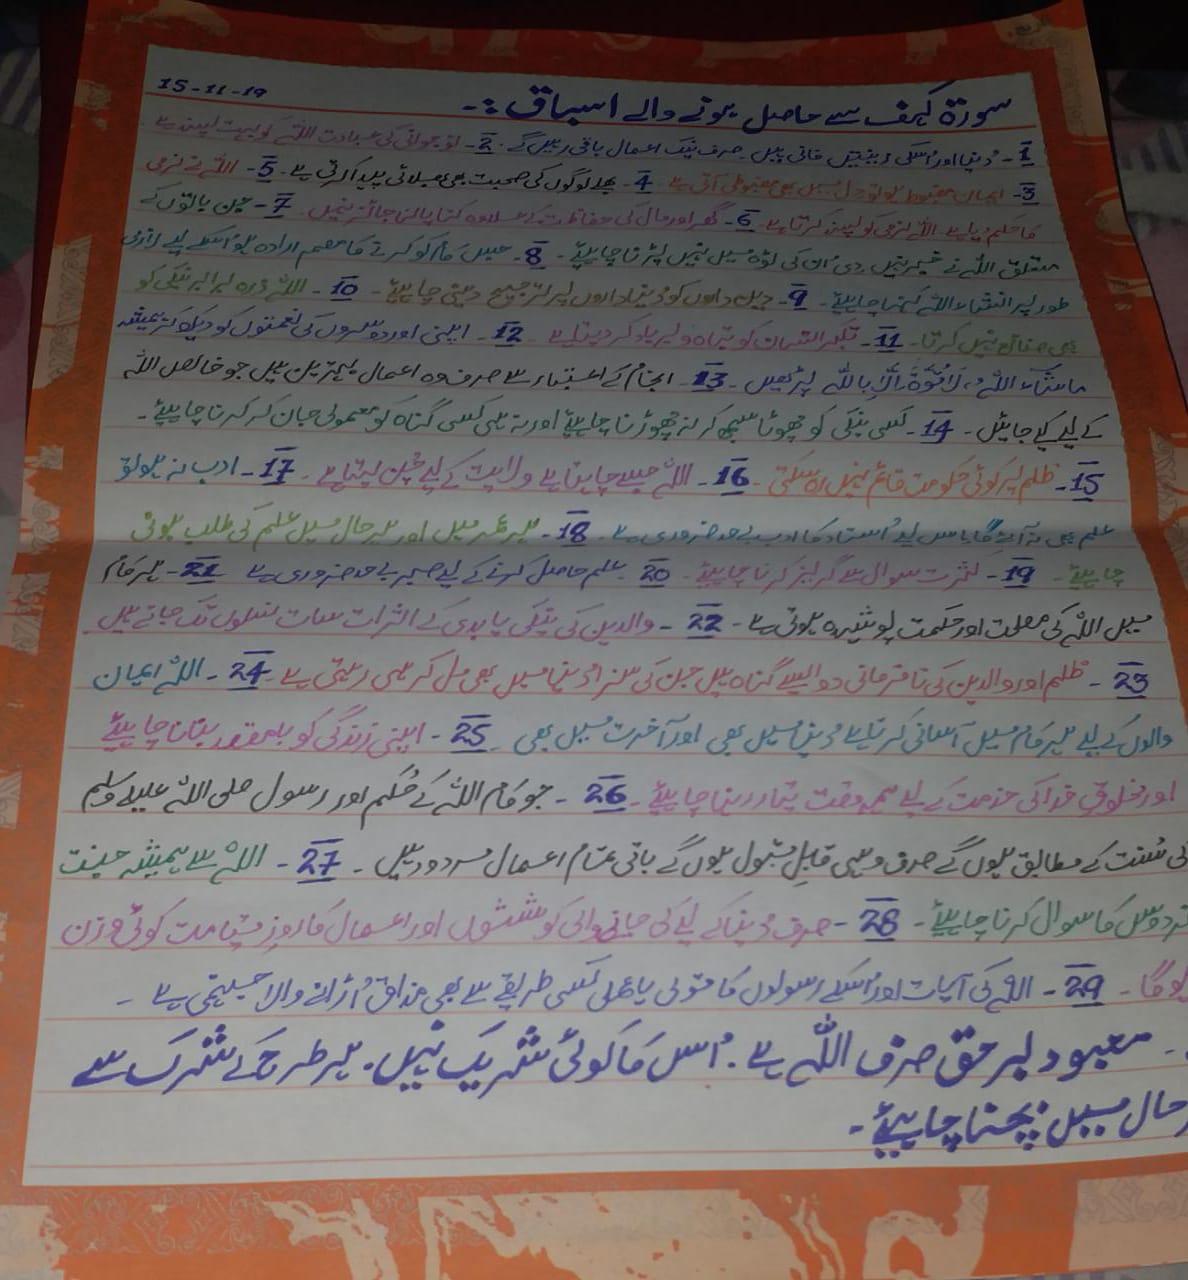 15-11-19
سورۃ کہف سے حاصل ہونے والے اسباق :-
1- دنیا اور اسکی زینتیں فانی ہیں۔ صرف نیک اعمال باقی رہیں گے۔ 2- نوجوانی کی عبادت اللہ کو بہت پسند ہے۔
3- ایمان مضبوط ہو تو دل میں بھی مضبوطی آتی ہے۔ 4- بھلے لوگوں کی صحبت بھی بھلائی پیدا کرتی ہے۔ 5- اللہ نے نرمی
کا حکم دیا ہے اللہ نرمی کو پسند کرتا ہے۔ 6- گھر اور مال کی حفاظت کے علاوہ کتا پالنا جائز نہیں۔ 7- جن باتوں کے
متعلق اللہ نے خبر نہیں دی اُن کی ٹوہ میں نہیں پڑنا چاہیئے۔ 8- جس کام کو کرنے کا مصمم ارادہ ہو اسکے لیے لازمی
طور پر انشاء اللہ کہنا چاہیئے۔ 9- دین داروں کو دنیاداروں پر ترجیح دینی چاہیئے۔ 10- اللہ ذرہ برابر نیکی کو
بھی ضائع نہیں کرتا۔ 11- تکبر انسان کو تباہ و برباد کر دیتا ہے۔ 12- اپنی اور دوسروں کی نعمتوں کو دیکھ کر ہمیشہ
ماشَآء اللہُ، لَا قُوَّةَ اِلَّا بِاللہ پڑھیں۔ 13- انجام کے اعتبار سے صرف وہ اعمال بہترین ہیں جو خالص اللہ
کے لیے کیے جائیں۔ 14- کسی نیکی کو چھوٹا سمجھ کر نہ چھوڑنا چاہیئے اور نہ ہی کسی گناہ کو معمولی جان کر کرنا چاہیئے۔
15- ظلم پر کوئی حکومت قائم نہیں رہ سکتی۔ 16- اللہ جسے چاہتا ہے ولایت کے لیے چُن لیتا ہے۔ 17- ادب نہ ہو تو
علم بھی نہ آئے گا اس لیے اُستاد کا ادب بے حد ضروری ہے۔ 18- ہر عمر میں اور ہر حال میں علم کی طلب ہونی
چاہیئے۔ 19- کثرت سوال سے گریز کرنا چاہیئے۔ 20- علم حاصل کرنے کے لیے صبر بے حد ضروری ہے 21- ہر کام
میں اللہ کی مصلحت اور حکمت پوشیدہ ہوتی ہے۔ 22- والدین کی نیکی یا بدی کے اثرات سات نسلوں تک جاتے ہیں
23- ظلم اور والدین کی نافرمانی دو ایسے گناہ ہیں جن کی سزا دنیا میں بھی مل کر ہی رہتی ہے۔ 24- اللہ ایمان
والوں کے لیے ہر کام میں آسانی کرتا ہے دُنیا میں بھی اور آخرت میں بھی۔ 25- اپنی زندگی کو بامقصد بنانا چاہیئے
اور مخلوقِ خدا کی خدمت کے لیے ہمہ وقت تیار رہنا چاہیئے۔ 26- جو کام اللہ کے حُکم اور رسول صلی اللہ علیہ وسلم
کی سُنت کے مطابق ہوں گے صرف وہی قابلِ قبول ہوں گے باقی تمام اعمال مردود ہیں۔ 27- اللہ سے ہمیشہ جنت
فردوس کا سوال کرنا چاہیئے۔ 28- صرف دُنیا کے لیے کی جانے والی کوششوں اور اعمال کا روزِ قیامت کوئی وزن
ہوگا۔ 29- اللہ کی آیات اور اُسکے رسولوں کا قولی یا عملی کسی طریقے سے بھی مذاق اُڑانے والا جہنمی ہے۔
معبودِ برحق صرف اللہ ہے۔ اُس کا کوئی شریک نہیں۔ ہر طرح کے شرک سے
حال میں بچنا چاہیئے۔